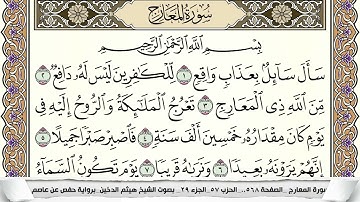 سُورَةُ المَعَارِجِ
بِسْمِ اللَّهِ الرَّحْمَٰنِ الرَّحِيمِ
سَأَلَ سَائِلٌ بِعَذَابٍ وَاقِعٍ ١ لِلْكَافِرِينَ لَيْسَ لَهُ دَافِعٌ ٢
مِنَ اللَّهِ ذِي الْمَعَارِجِ ٣ تَعْرُجُ الْمَلَائِكَةُ وَالرُّوحُ إِلَيْهِ فِي
يَوْمٍ كَانَ مِقْدَارُهُ خَمْسِينَ أَلْفَ سَنَةٍ ٤ فَاصْبِرْ صَبْرًا جَمِيلًا ٥
إِنَّهُمْ يَرَوْنَهُ بَعِيدًا ٦ وَنَرَاهُ قَرِيبًا ٧ يَوْمَ تَكُونُ السَّمَاءُ
سورة المعارج .. الصفحة ٥٦٨.. الحزب ٥٧ الجزء ٢٩ .. بصوت الشيخ هيثم الدخين.. برواية حفص عن عاصم